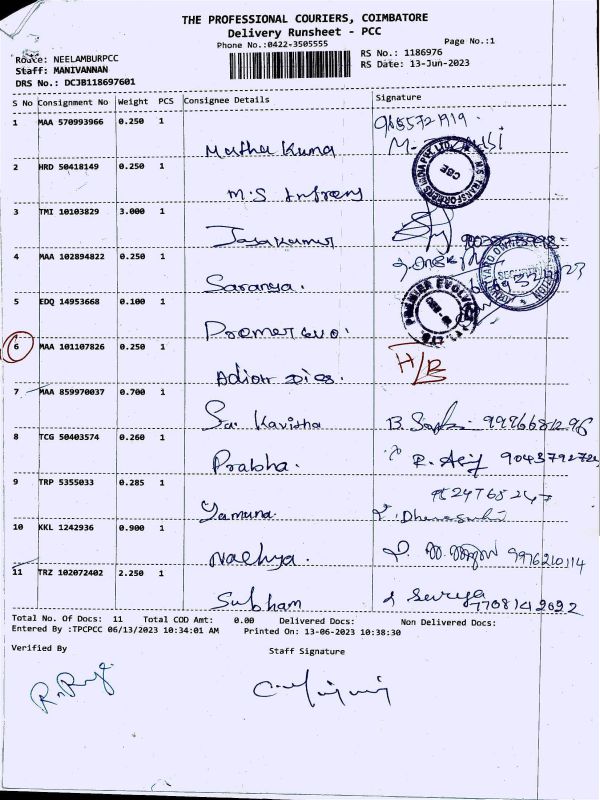 THE PROFESSIONAL COURIERS, COIMBATORE
Delivery Runsheet - PCC
Phone No.:0422-3505555
Page No.:1
Route: NEELAMBURPCC
RS No.: 1186976
Staff: MANIVANNAN
RS Date: 13-Jun-2023
DRS No.: DCJB118697601
S No Consignment No Weight PCS Consignee Details Signature
1 MAA 570993966 0.250 1
Muthu Kumar
2 HRD 50418149 0.250 1
M.S
3 TMI 10103829 3.000 1
Jasakumar
4 MAA 102894822 0.250 1
Saranya.
5 EDQ 14953668 0.100 1
Premer evo.
6 MAA 101107826 0.250 1 H/B
7 MAA 859970037 0.700 1
Sa. Kavitha B. 9996681296
8 TCG 50403574 0.260 1
Prabha. R. Asif 9043792724
9 TRP 5355033 0.285 1 9524768247
Yamuna
10 KKL 1242936 0.900 1
9976210114
11 TRZ 102072402 2.250 1
Subham Surya 7708142692
Total No. Of Docs: 11 Total COD Amt: 0.00 Delivered Docs: Non Delivered Docs:
Entered By :TPCPCC 06/13/2023 10:34:01 AM Printed On: 13-06-2023 10:38:30
Verified By
Staff Signature